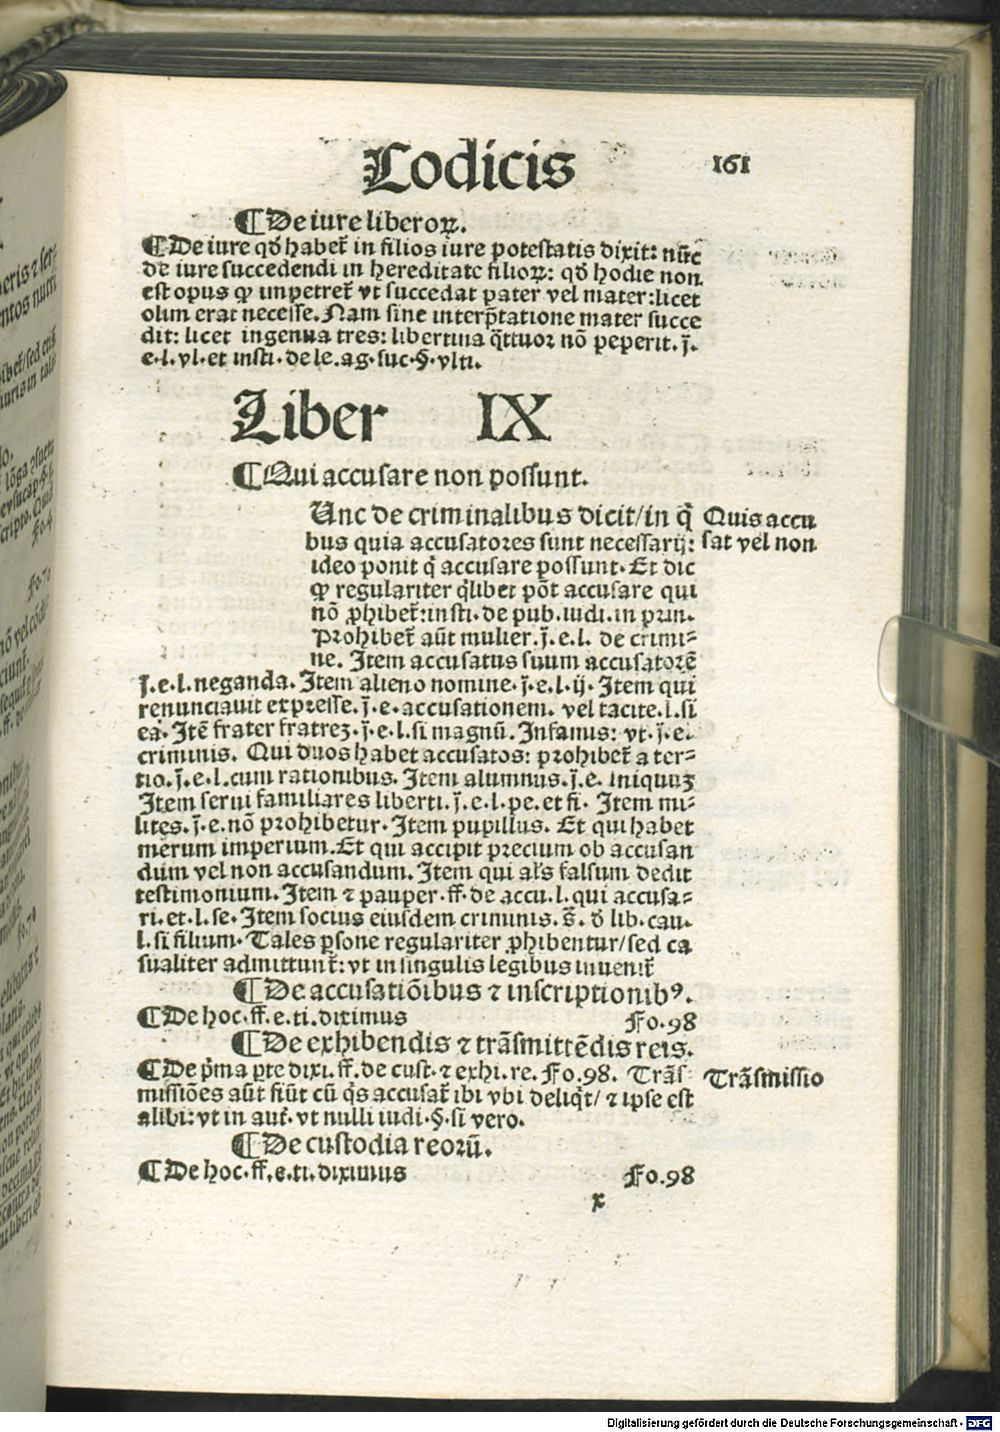 Codicis 161
¶De iure liberoꝝ.
¶De iure qđ habet̃ in filios iure potestatis dixit: nũc
de iure succedendi in hereditate filioꝝ: qđ hodie non
est opus ꝙ impetret̃ vt succedat pater vel mater: licet
olim erat necesse. Nam sine interp̃tatione mater succe
dit: licet ingenua tres: libertina q̃ttuor nõ peperit. j̃.
e.l.vl.et insti.de le.ag.suc.§.vlti.
Liber IX
¶Qui accusare non possunt.
Unc de criminalibus dicit/in q̃ Quis accu
bus quia accusatores sunt necessarij: sat vel non
ideo ponit q̃ accusare possunt. Et dic
ꝙ regulariter q̃libet põt accusare qui
nõ ꝓhibet̃: insti. de pub.iudi.in prin.
Prohibet̃ aũt mulier. j̃.e.l. de crimi⸗
ne. Item accusatus suum accusatorẽ
j̃.e.l.neganda. Item alieno nomine. j̃.e.l.ij. Item qui
renunciauit expresse. j̃.e.accusationem. vel tacite.l.si
ea. Itẽ frater fratreʒ. j̃.e.l.si magnũ. Infamus: vt. j̃.e.
criminis. Qui duos habet accusatos: prohibet̃ a ter⸗
tio. j̃.e.l.cum rationibus. Item alumnus. j̃.e. iniquuʒ
Item serui familiares liberti. j̃.e.l.pe.et fi. Item mi⸗
lites. j̃.e.nõ prohibetur. Item pupillus. Et qui habet
merum imperium. Et qui accipit precium ob accusan
dum vel non accusandum. Item qui als̃ falsum dedit
testimonium. Item ⁊ pauper. ff. de accu.l.qui accusa⸗
ri.et.l.se. Item socius eiusdem criminis. s̃. đ lib.cau.
l.si filium. Tales ꝑsone regulariter ꝓhibentur/sed ca
sualiter admittunt̃: vt in singulis legibus inuenit̃
¶De accusatiõibus ⁊ inscriptionibꝰ.
¶De hoc.ff.e.ti.diximus Fo.98
¶De exhibendis ⁊ trãsmittẽdis reis.
¶De p̃ma ꝑte dixi.ff.de cust.⁊ exhi.re. Fo.98. Trãs⸗ Trãsmissio
missiões aũt fiũt cũ q̃s accusat̃ ibi vbi deliq̃t/ ⁊ ipse est
alibi: vt in aut̃. vt nulli iudi.§.si vero.
¶De custodia reorũ.
¶De hoc.ff.e.ti.diximus Fo.98
x
Digitalisierung gefördert durch die Deutsche Forschungsgemeinschaft - DFG